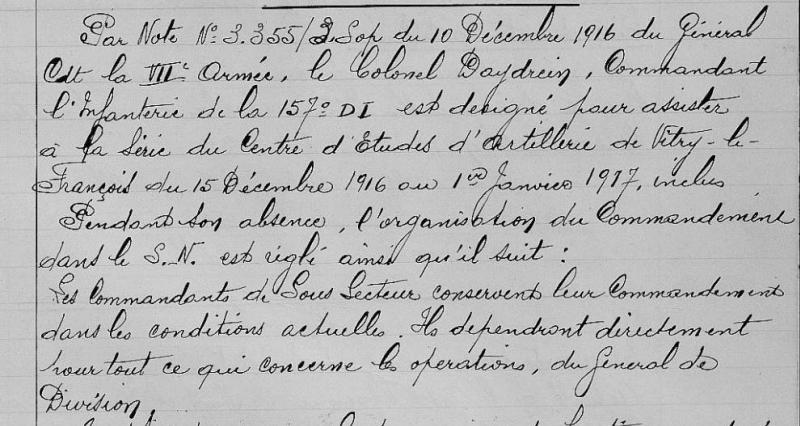 Par Note No 3.355/3 Sop du 10 Décembre 1916 du Général
Cdt la VIIe Armée, le Colonel Daydrein, Commandant
l'Infanterie de la 157e DI est designé pour assister
à la Série du Centre d'Etudes d'artillerie de Vitry-le-
François du 15 Décembre 1916 au 1er Janvier 1917, inclus
Pendant son absence, l'organisation du Commandement
dans le S.N. est réglé ainsi qu'il suit :
Les Commandants de Sous Secteur conservent leur Commandement
dans les conditions actuelles. Ils dependront directement
pour tout ce qui concerne les operations, du General de
Division